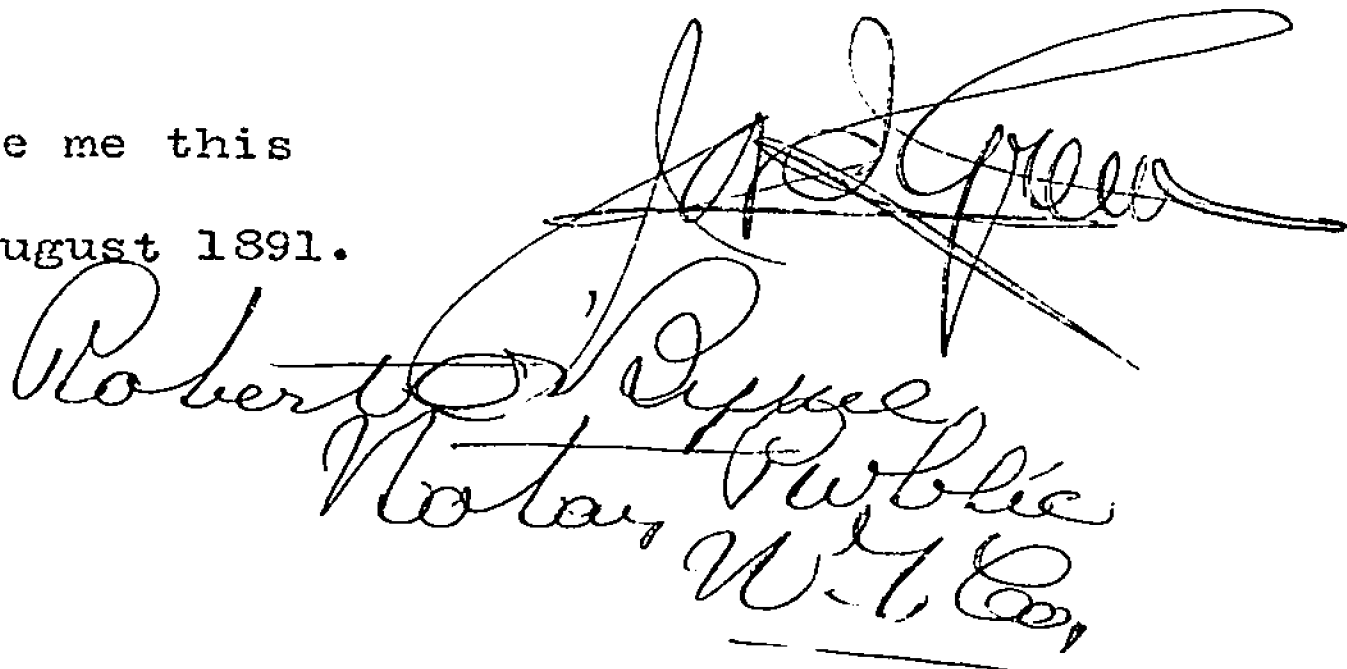 e me this
ugust 1891.
Green
Robert O'Byrne,
Notary Public
N.Y. Co.,